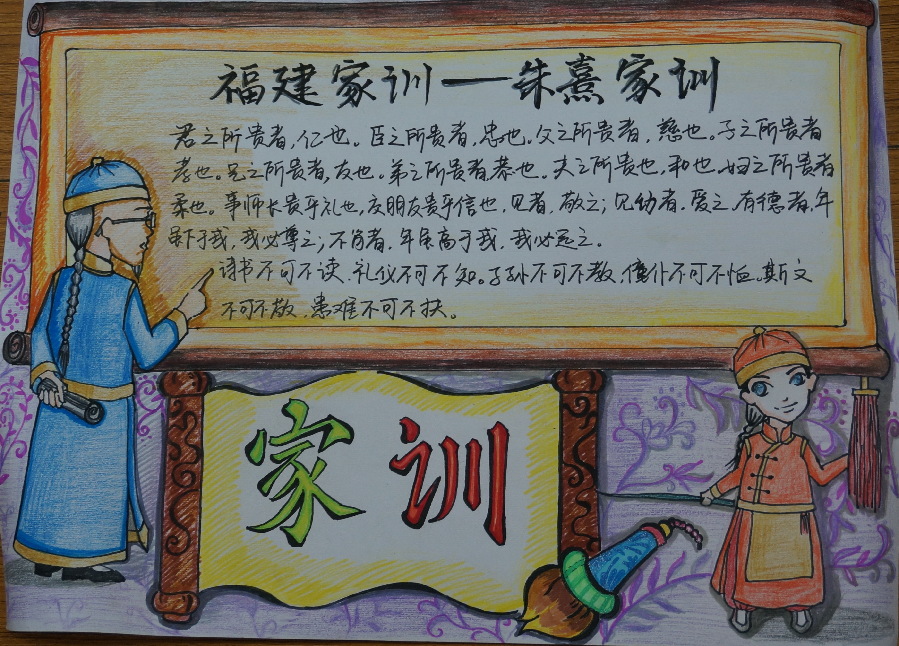 福建家训——朱熹家训
君之所贵者，仁也。臣之所贵者，忠也。父之所贵者，慈也。子之所贵者
孝也。兄之所贵者，友也。弟之所贵者，恭也。夫之所贵也，和也，妇之所贵者
柔也。事师长贵乎礼也，交朋友贵乎信也，见者，敬之；见幼者，爱之。有德者，年
下于我，我必尊之；不肖者，年虽高于我，我必远之。
诗书不可不读，礼仪不可不知。子孙不可不教，僮仆不可不恤。斯文
不可不敬，患难不可不扶。
家训